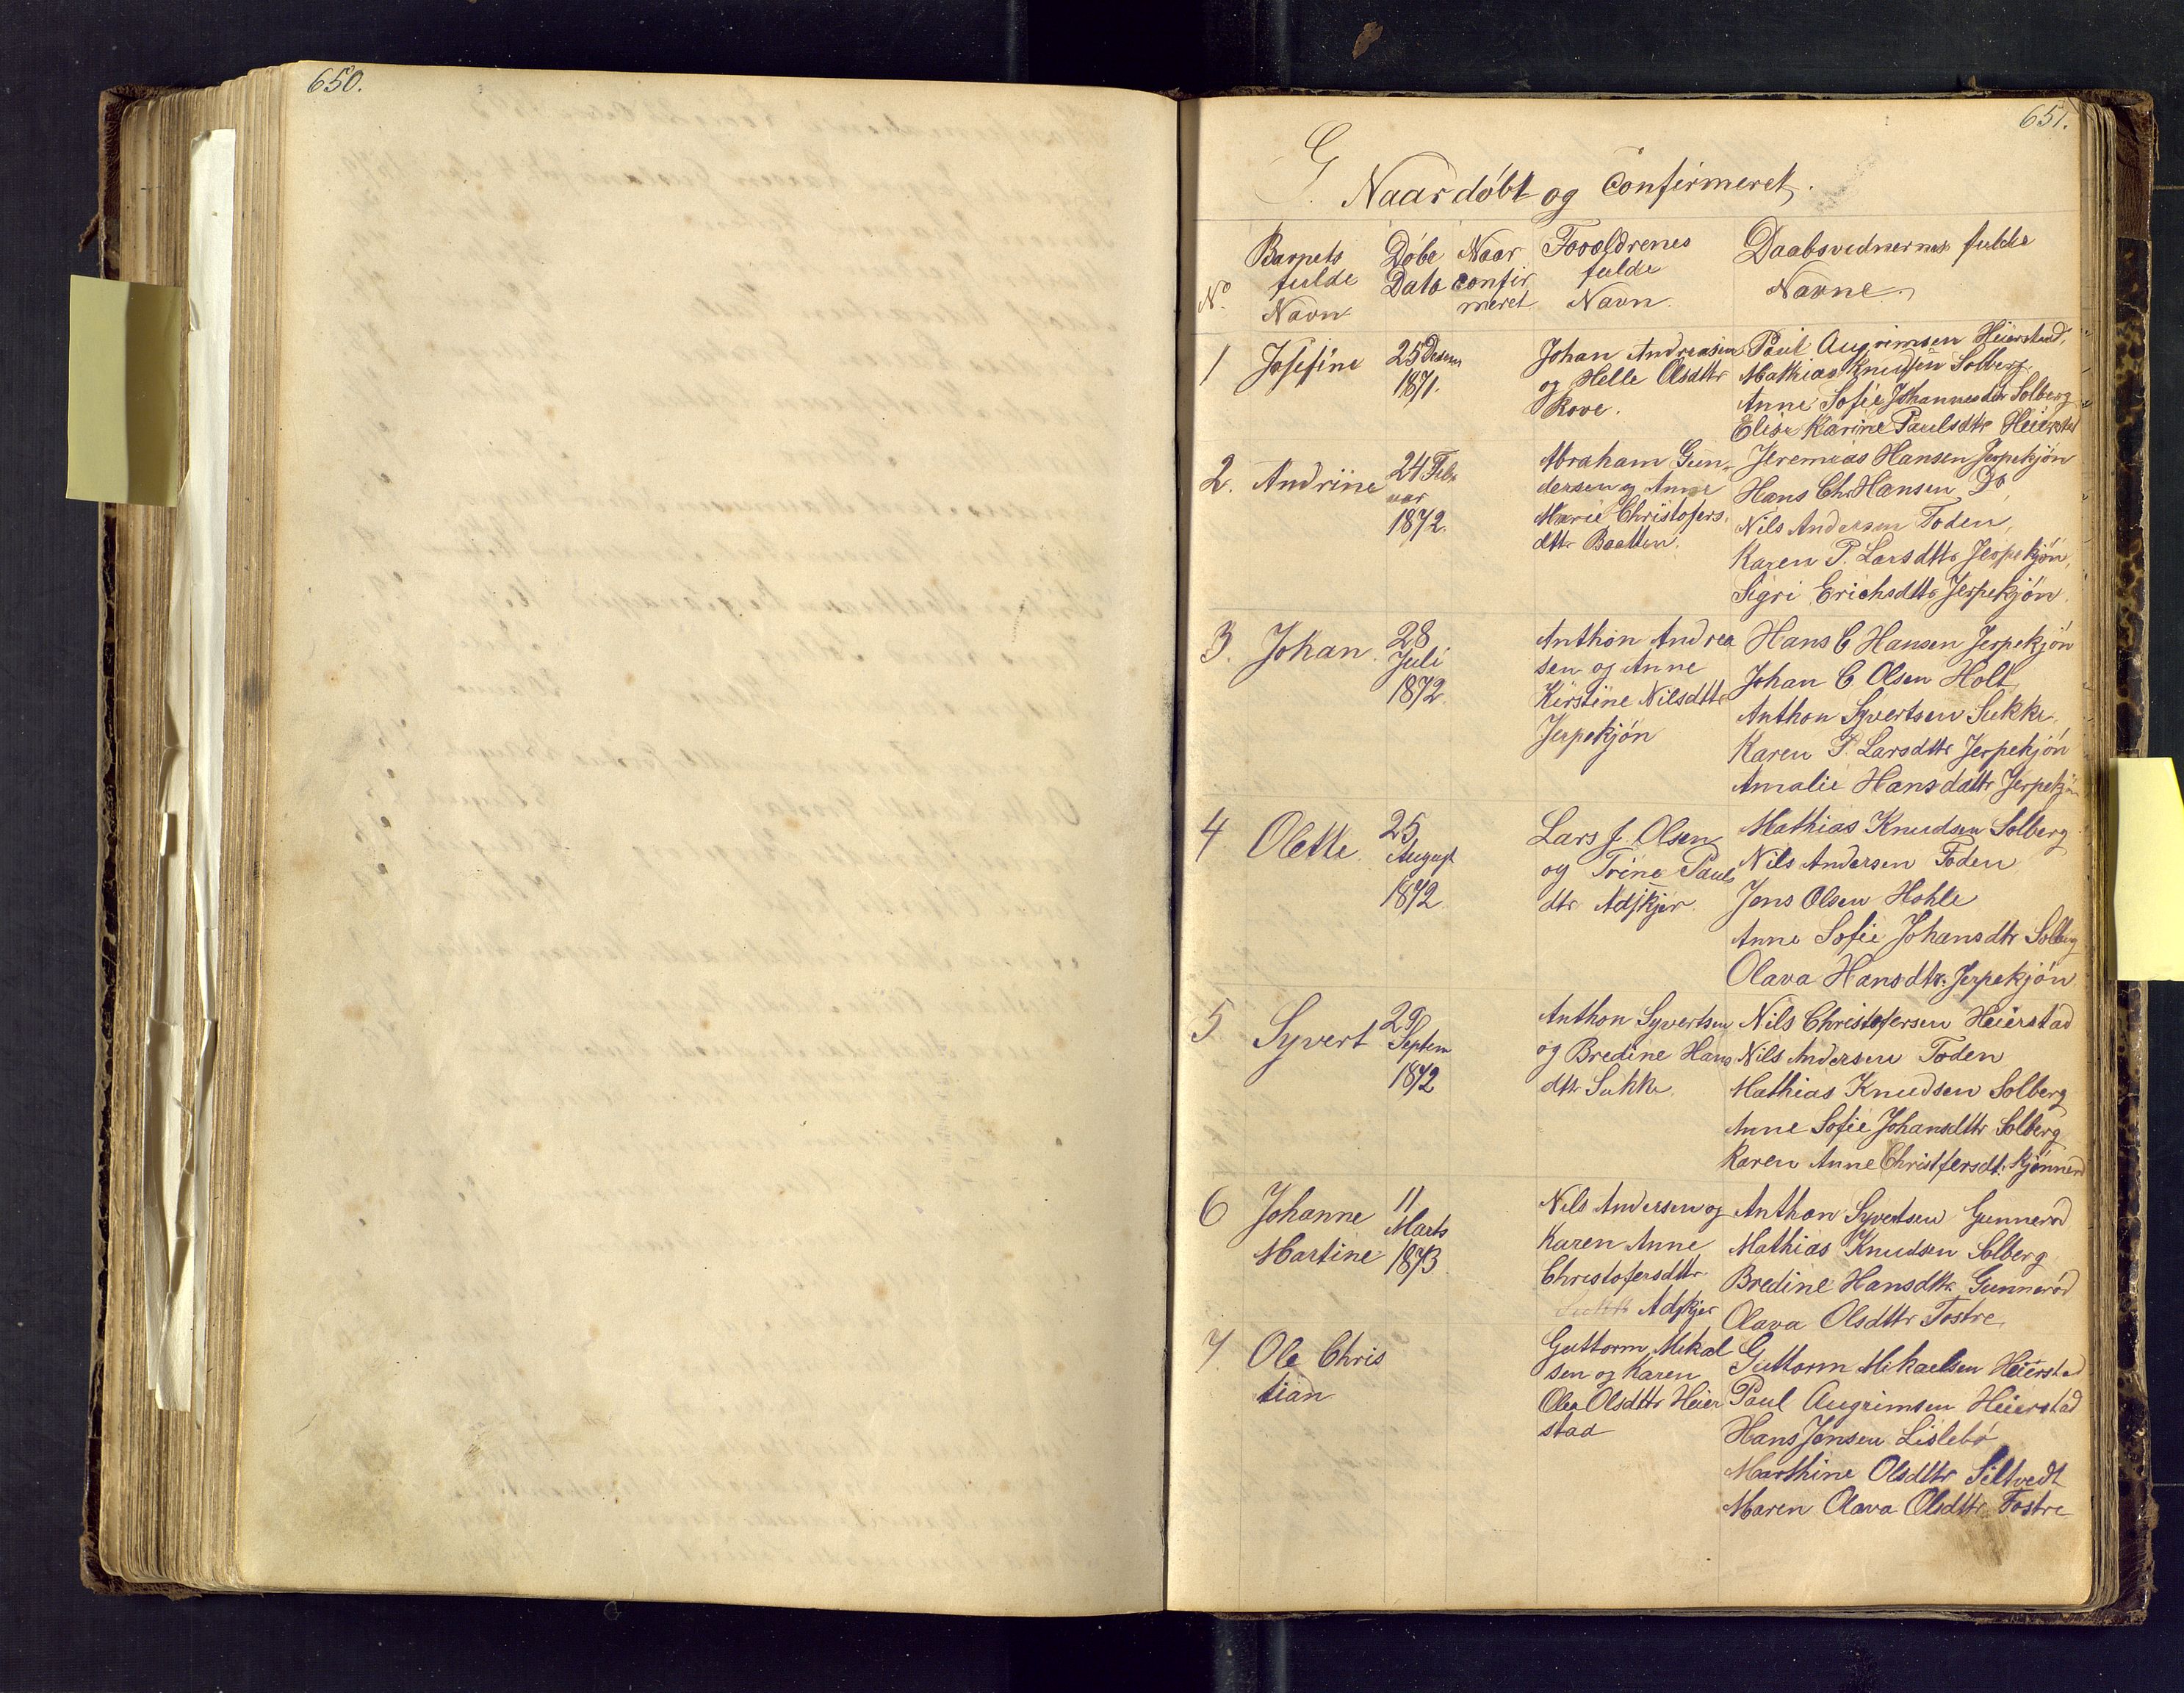 650.
651.
G. Naar döbt og Confirmeret.
No. Barnets fulde Navn
Döbe Dato
Naar confirmeret
Forældrenes fulde Navn
Daabsvidnernes fulde Navne
1 Josefine
25 Decem
1871.
Johan Andreasen
og Helle Olsdttr
Rove.
Paul Augrimsen Heierstad,
Mathias Knudsen Solberg
Anne Sofie Johannesdtr Solberg
Elise Karine Paulsdtr Heierstad
2. Andrine
24 Febr
uar
1872.
Abraham Gun-
dersen og Anne
Marie Christofers
dttr Baatten.
Jeremias Hansen Jerpekjön
Hans Chr Hansen Do,
Nils Andersen Toden,
Karen P. Larsdttr Jerpekjön,
Sigri Erichsdttr Jerpekjön.
3. Johan.
28
Juli
1872.
Anthon Andrea
sen og Anne
Kirstine Nilsdttr
Jerpekjön
Hans C Hansen Jerpekjön
Johan C Olsen Holt
Anthon Syvertsen Sukke.
Karen P. Larsdttr Jerpekjön
Amalie Hansdattr Jerpekjön
4 Olette.
25
August
1872.
Lars J. Olsen
og Trine Pauls
dtr Adskjer.
Mathias Knudsen Solberg
Nils Andersen Toden
Jens Olsen Hohle
Anne Sofie Johansdtr Solberg
Olava Hansdtr. Jerpekjön
5 Syvert
29
Septem
1872
Anthon Syvertsen
og Bredine Hans
dttr Sukke.
Nils Christofersen Heierstad
Nils Andersen Toden
Mathias Knudsen Solberg
Anne Sofie Johansdttr Solberg
Karen Anne Christfersdt. Kjönneröd
6 Johanne
Martine
11
Marts
1873.
Nils Andersen og
Karen Anne
Christofersdttr
Adskjer
Anthon Syvertsen Gunneröd
Mathias Knudsen Solberg
Bredine Hansdttr Gunneröd
Olava Olsdttr Tostre,
7. Ole Chris
tian
Guttorm Mikal
sen og Karen
Olea Olsdttr Heier
stad
Guttorm Mikaelsen Heierstad
Paul Augrimsen Heierstad
Hans Jensen Lislebö
Marthine Olsdttr Siltvedt
Maren Olava Olsdttr Tostre